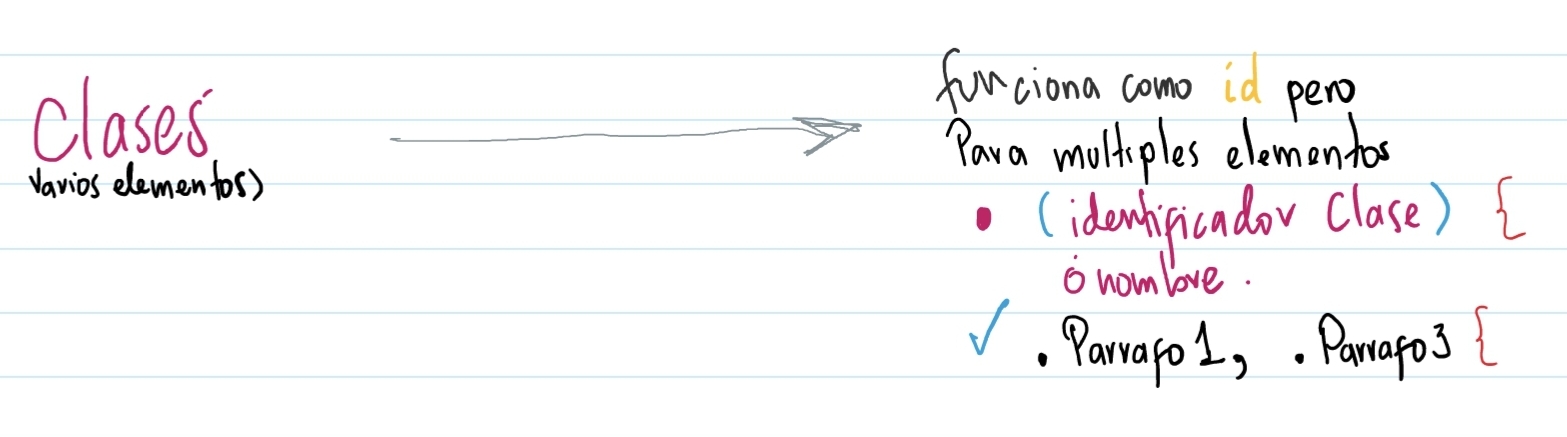 Clases
varios elementos)
funciona como id pero
Para multiples elementos
• (identificador Clase) {
ó nombre.
✓ .Parrafo1, .Parrafo3 {